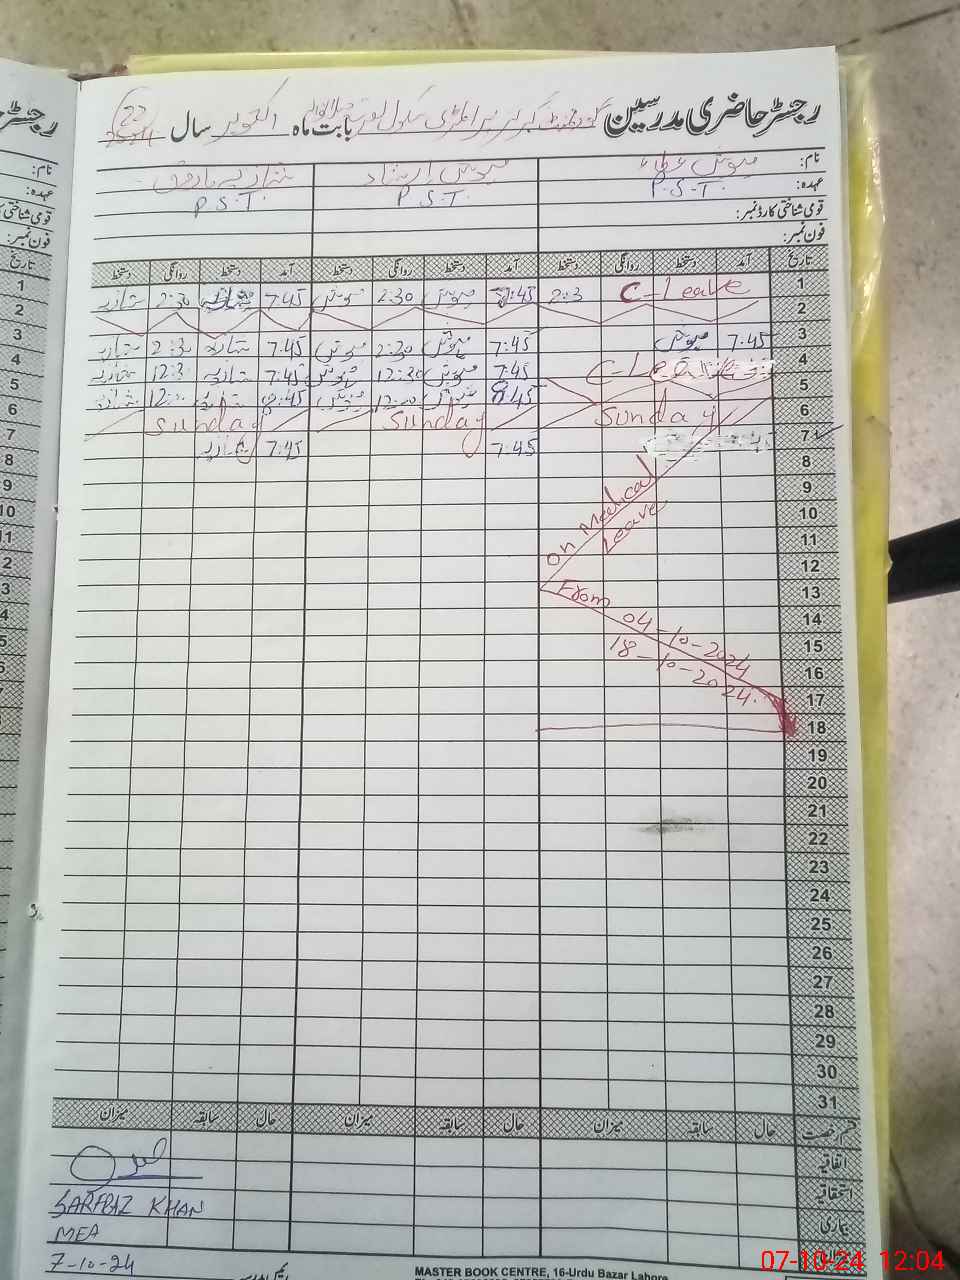 رجسٹر حاضری مدرسین گورنمنٹ گرلز پرائمری سکول بابت ماہ اکتوبر سال 2024
22
نام: مہوش عطاء مہوش ارشاد شازیہ
عہدہ: P.S.T. P.S.T. P.S.T.
قومی شناختی کارڈ نمبر:
فون نمبر:
تاریخ آمد دستخط روانگی دستخط آمد دستخط روانگی دستخط آمد دستخط روانگی دستخط
1 C-Leave 2:3 8:45 مہوش 2:30 مہوش 7:45 شازیہ 2:30 شازیہ
2
3 7.45 مہوش 7:45 مہوش 2:30 مہوش 7.45 شازیہ 2:3 شازیہ
4 C-Leave 7:45 مہوش 12:30 مہوش 7.45 شازیہ 12:3 شازیہ
5 8:45 مہوش مہوش 8:45 شازیہ شازیہ
6 Sunday Sunday Sunday
7 7:45 7:45 شازیہ
8
9
10
11
12
13
14
15
16
17
18
On Medical
Leave
From 04-10-2024
18-10-2024.
19
20
21
22
23
24
25
26
27
28
29
30
31
قسم رخصت حال سابقہ میزان حال سابقہ میزان حال سابقہ میزان
اتفاقیہ
استحقاقیہ
بیماری
SARFRAZ KHAN
MEA
7-10-24
MASTER BOOK CENTRE, 16-Urdu Bazar Lahore
07-10-24 12:04